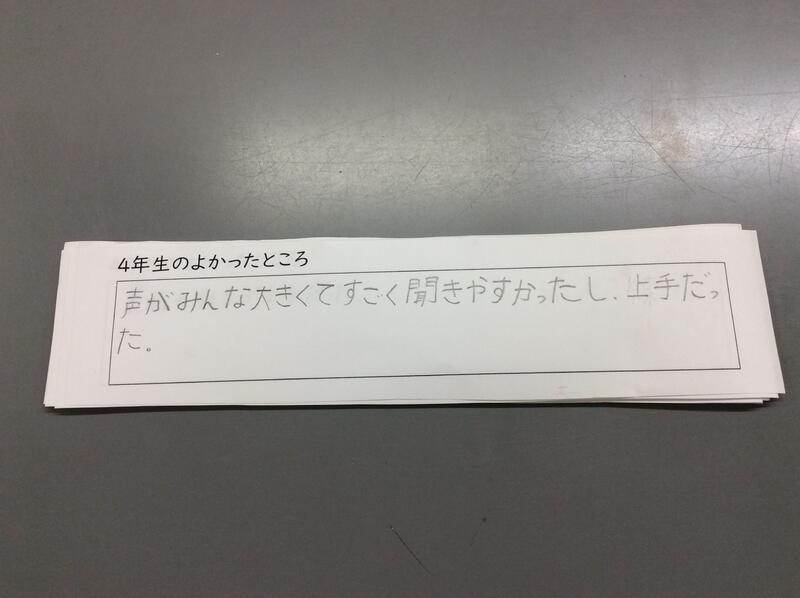 4年生のよかったところ
声がみんな大きくてすごく聞きやすかったし、上手だっ
た。